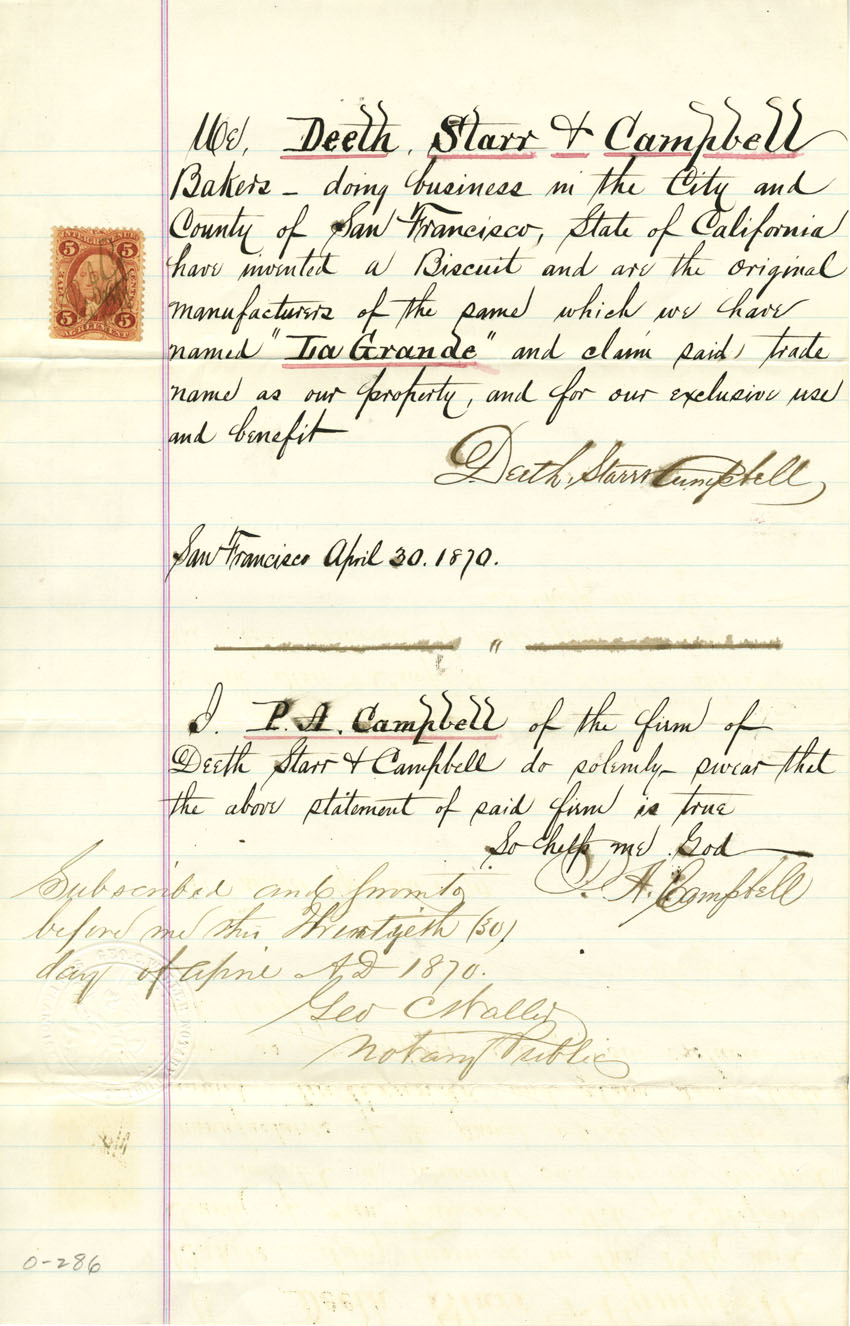 We, Deeth, Starr & Campbell
Bakers - doing business in the City and
County of San Francisco, State of California
have invented a Biscuit and are the original
manufacturers of the same which we have
named "La Grande" and claim said trade
name as our property, and for our exclusive use
and benefit
Deeth, Starr & Campbell
San Francisco April 30. 1870.
"
I. P. A. Campbell of the firm of
Deeth Starr & Campbell do solemly - swear that
the above statement of said firm is true
So help me God
P. A. Campbell
Subscribed and sworn to
before me this Thirtieth (30)
day of April A D 1870.
Geo C Waller
Notary Public
5 5
FIVE CENTS
5 5
AGREEMENT
0-286